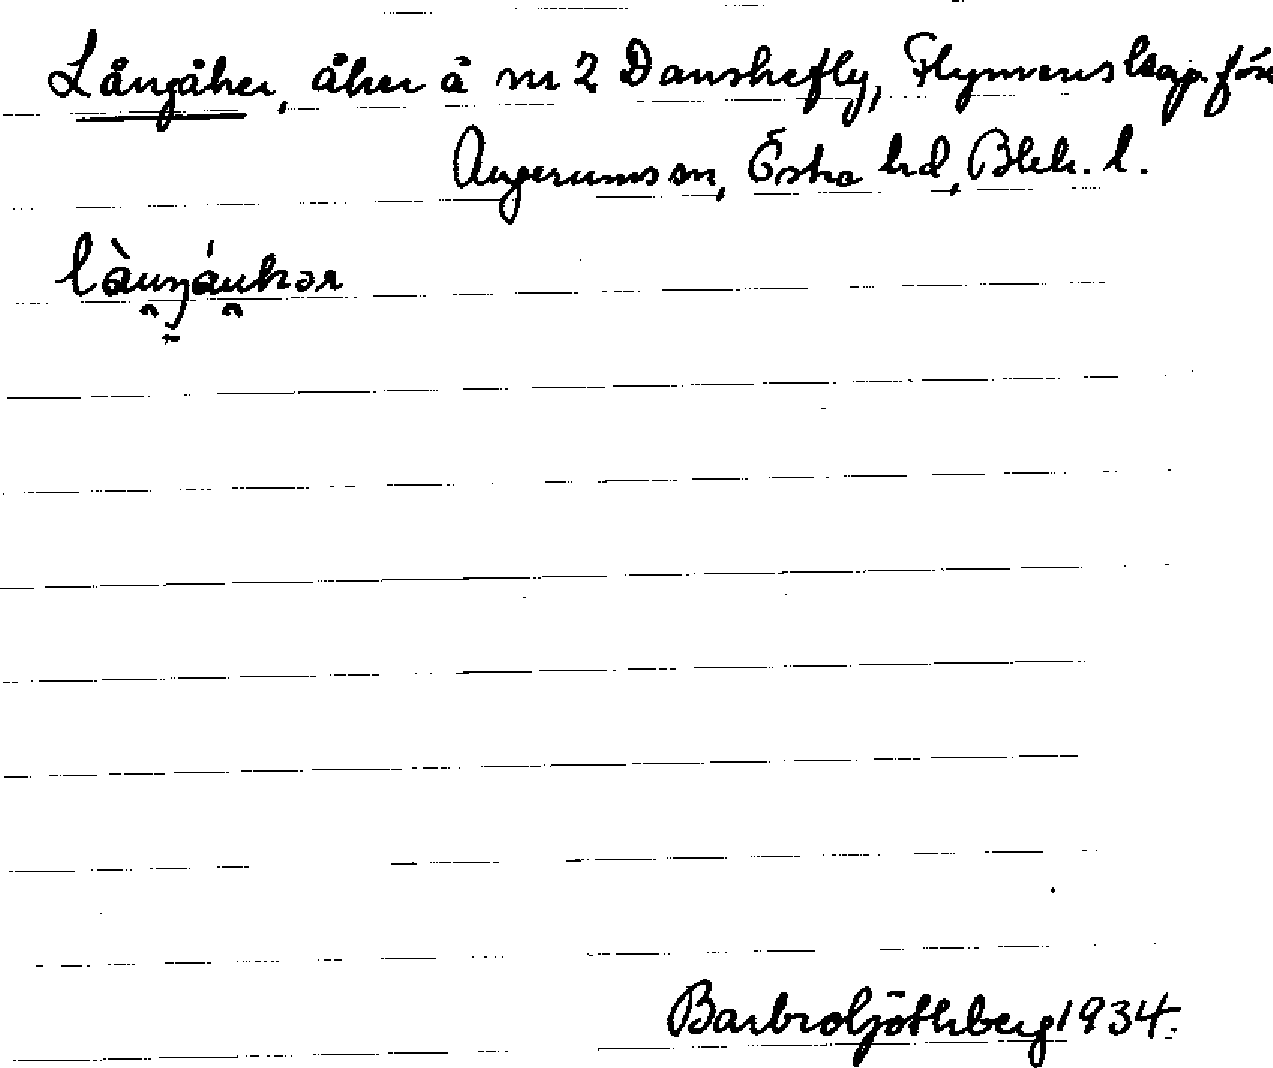 Långåker, åker å nr 2 Danskefly, Flymens kap. förs.
Augerums sn, Östra hd, Blek. l.
làuŋáukər
Barbro Göthberg 1934.